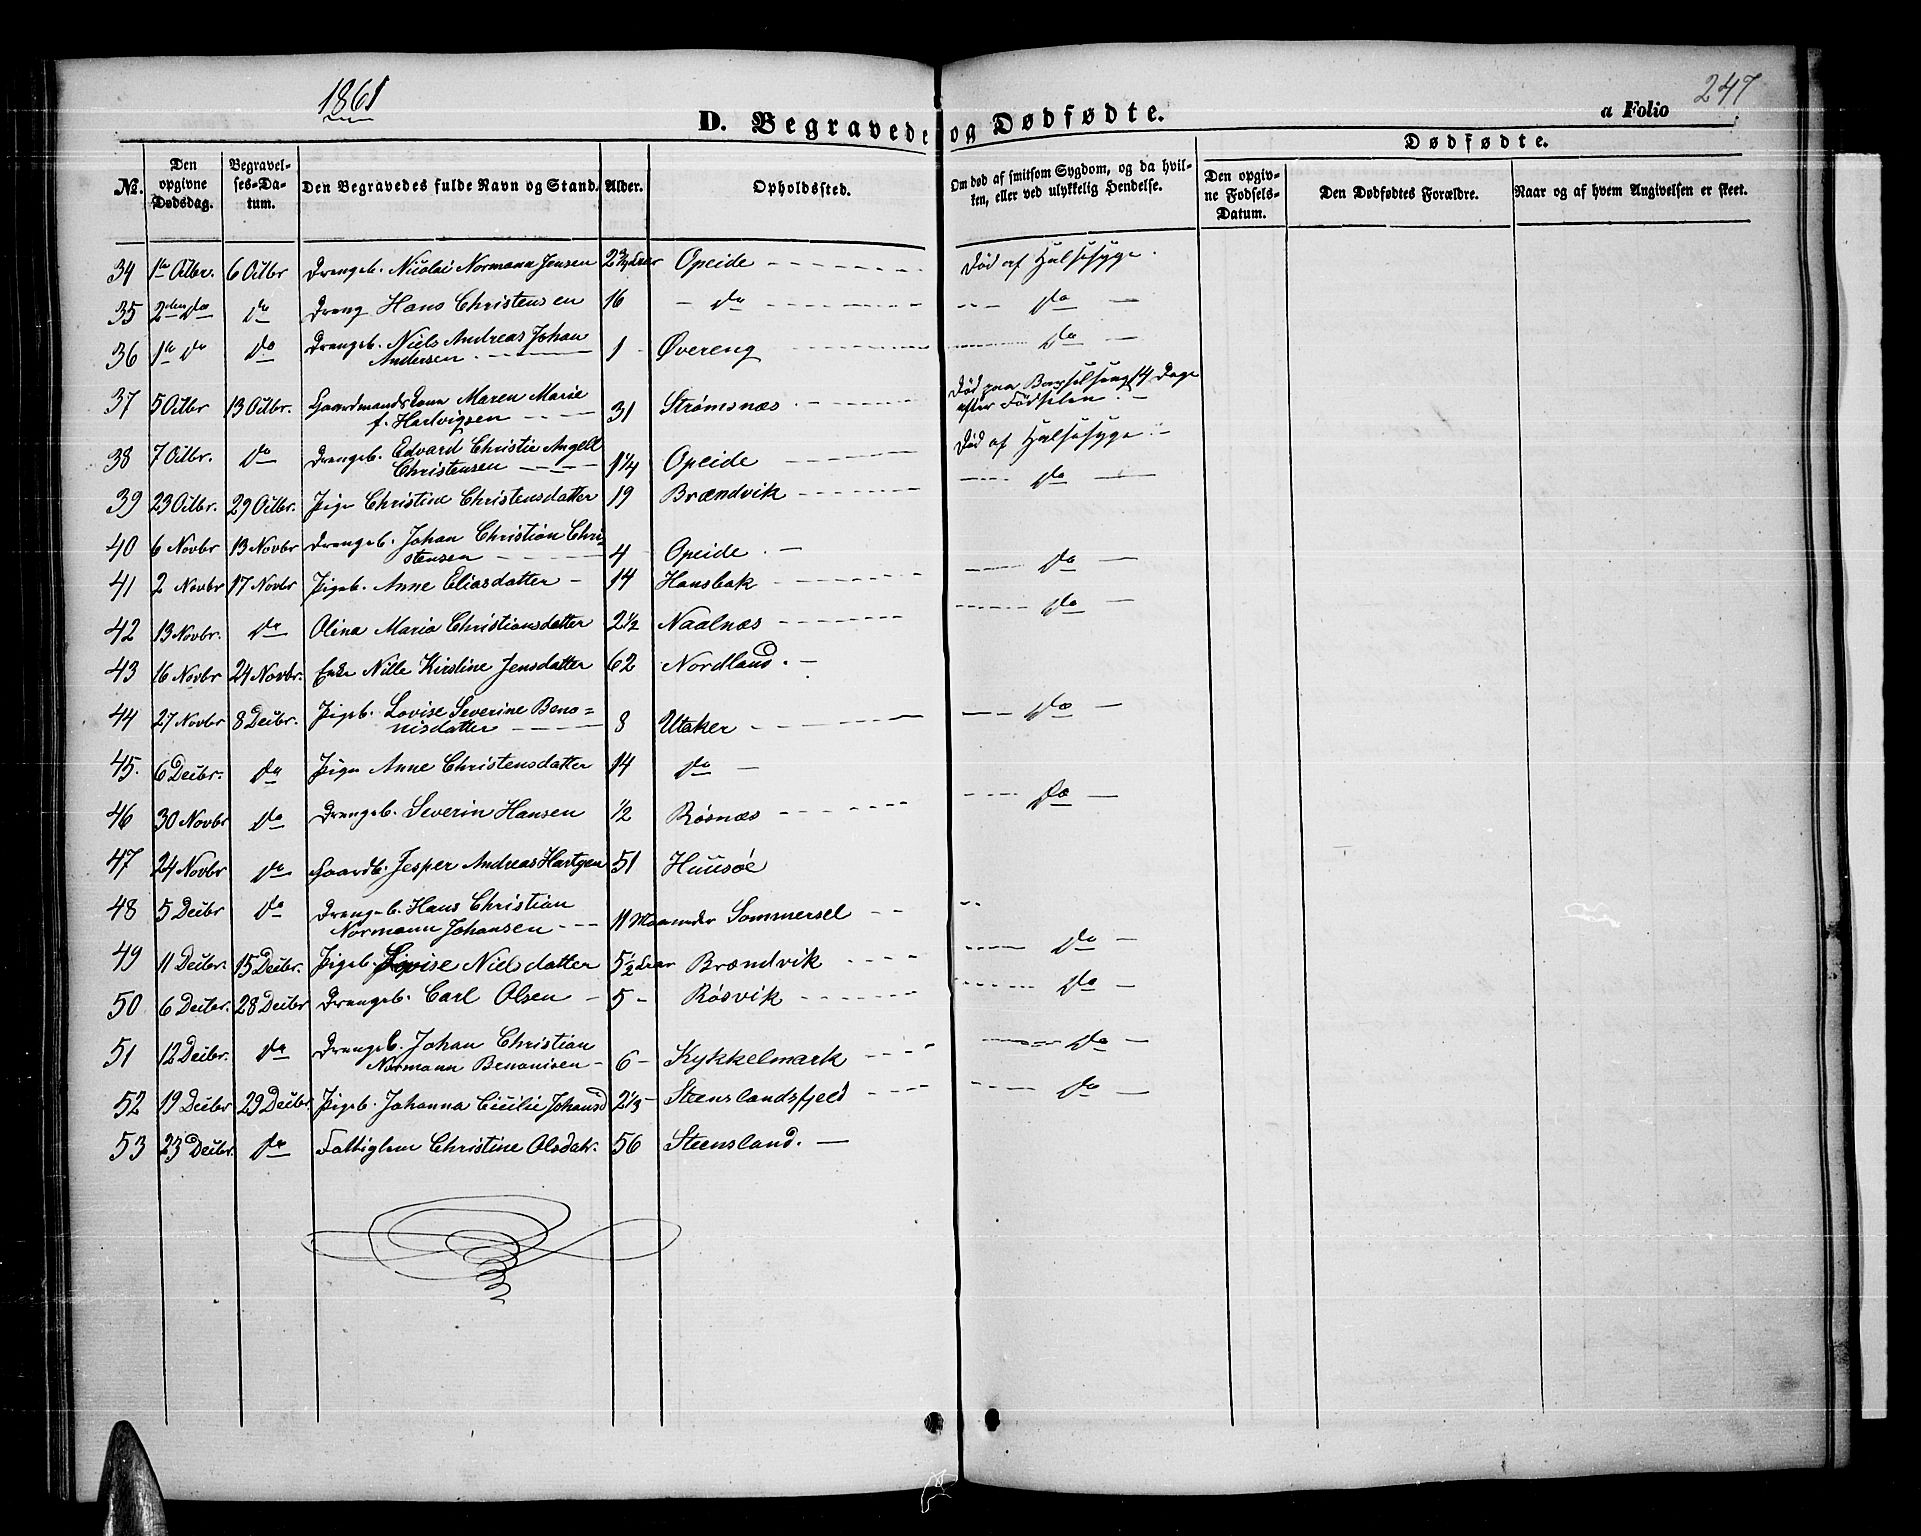 1861
247
D. Begravede og Dødfødte.
a Folio
Dødfødte.
No. Den opgivne Dødsdag. Begravelses-Datum. Den Begravedes fulde Navn og Stand. Alder. Opholdssted. Om død af smitsom Sygdom, og da hvilken, eller ved ulykkelig Hendelse. Den opgivne Fødsels-Datum. Den Dødfødtes Forældre. Naar og af hvem Angivelsen er skeet.
34 1te Octbr. 6 Octbr Drengeb. Nicolai Normann Jensen Opeide Død af Halssyge.
35 2den Do Do Dreng Hans Christensen 16 Do Do
36 1te Do Do Drengeb. Niels Andreas Johan
Andersen 1 Øvereng Do
37 5 Octbr 13 Octbr. Gaardmandskone Maren Marie
f. Hartvigsen 31 Strømsnæs Død paa Barselseng 14 Dage
efter Fødselen.
38 7 Octbr. Do Drengeb. Edvard Christie Angell
Christensen 1 1/4 Opeide Død af Halssyge
39 23 Octbr. 29 Octbr. Pige Christine Christensdatter 19 Brændvik Do
40 6 Novbr 13 Novbr Drengeb. Johan Christian Chri-
stensen 4 Opeide
41 2 Novbr 17 Novbr Pigeb. Anne Eliasdatter 14 Hansbak Do
42 13 Novbr. Do Olina Maria Christiansdatter 2 1/2 Naalnæs Do
43 16 Novbr 24 Novbr. Enke Nille Kirstine Jensdatter 62 Nordland.
44 27 Novbr 8 Decbr. Pigeb. Lovise Severine Beno=
nisdatter 8 Utaker Do
45. 6 Decbr. Do Pige Anne Christensdatter 14 Do
46 30 Novbr Do Drengeb. Severin Hansen 1/2 Røsnæs Do
47 24 Novbr Do Gaardb. Jesper Andreas 51 Huusøe
48 5 Decbr Do Drengeb. Hans Christian
Normann Johansen 11 Maaneder Sommersel
49 11 Decbr. 15 Decbr. Pigeb. Lovise Nielsdatter 5 1/2 Aar Brændvik Do
50 6 Decbr. 28 Decbr Drengeb. Carl Olsen 5 Røsvik Do
51 12 Decbr. Do Drengeb. Johan Christian
Normann Benonisen 6 Kykkelmark Do
52 19 Decbr 29 Decbr Pigeb. Johanna Cicilie Johansd 2 1/3 Steenslandsfjeld Do
53 23 Decbr. Do Fattiglem Christine Olsdatr. 56 Steensland.